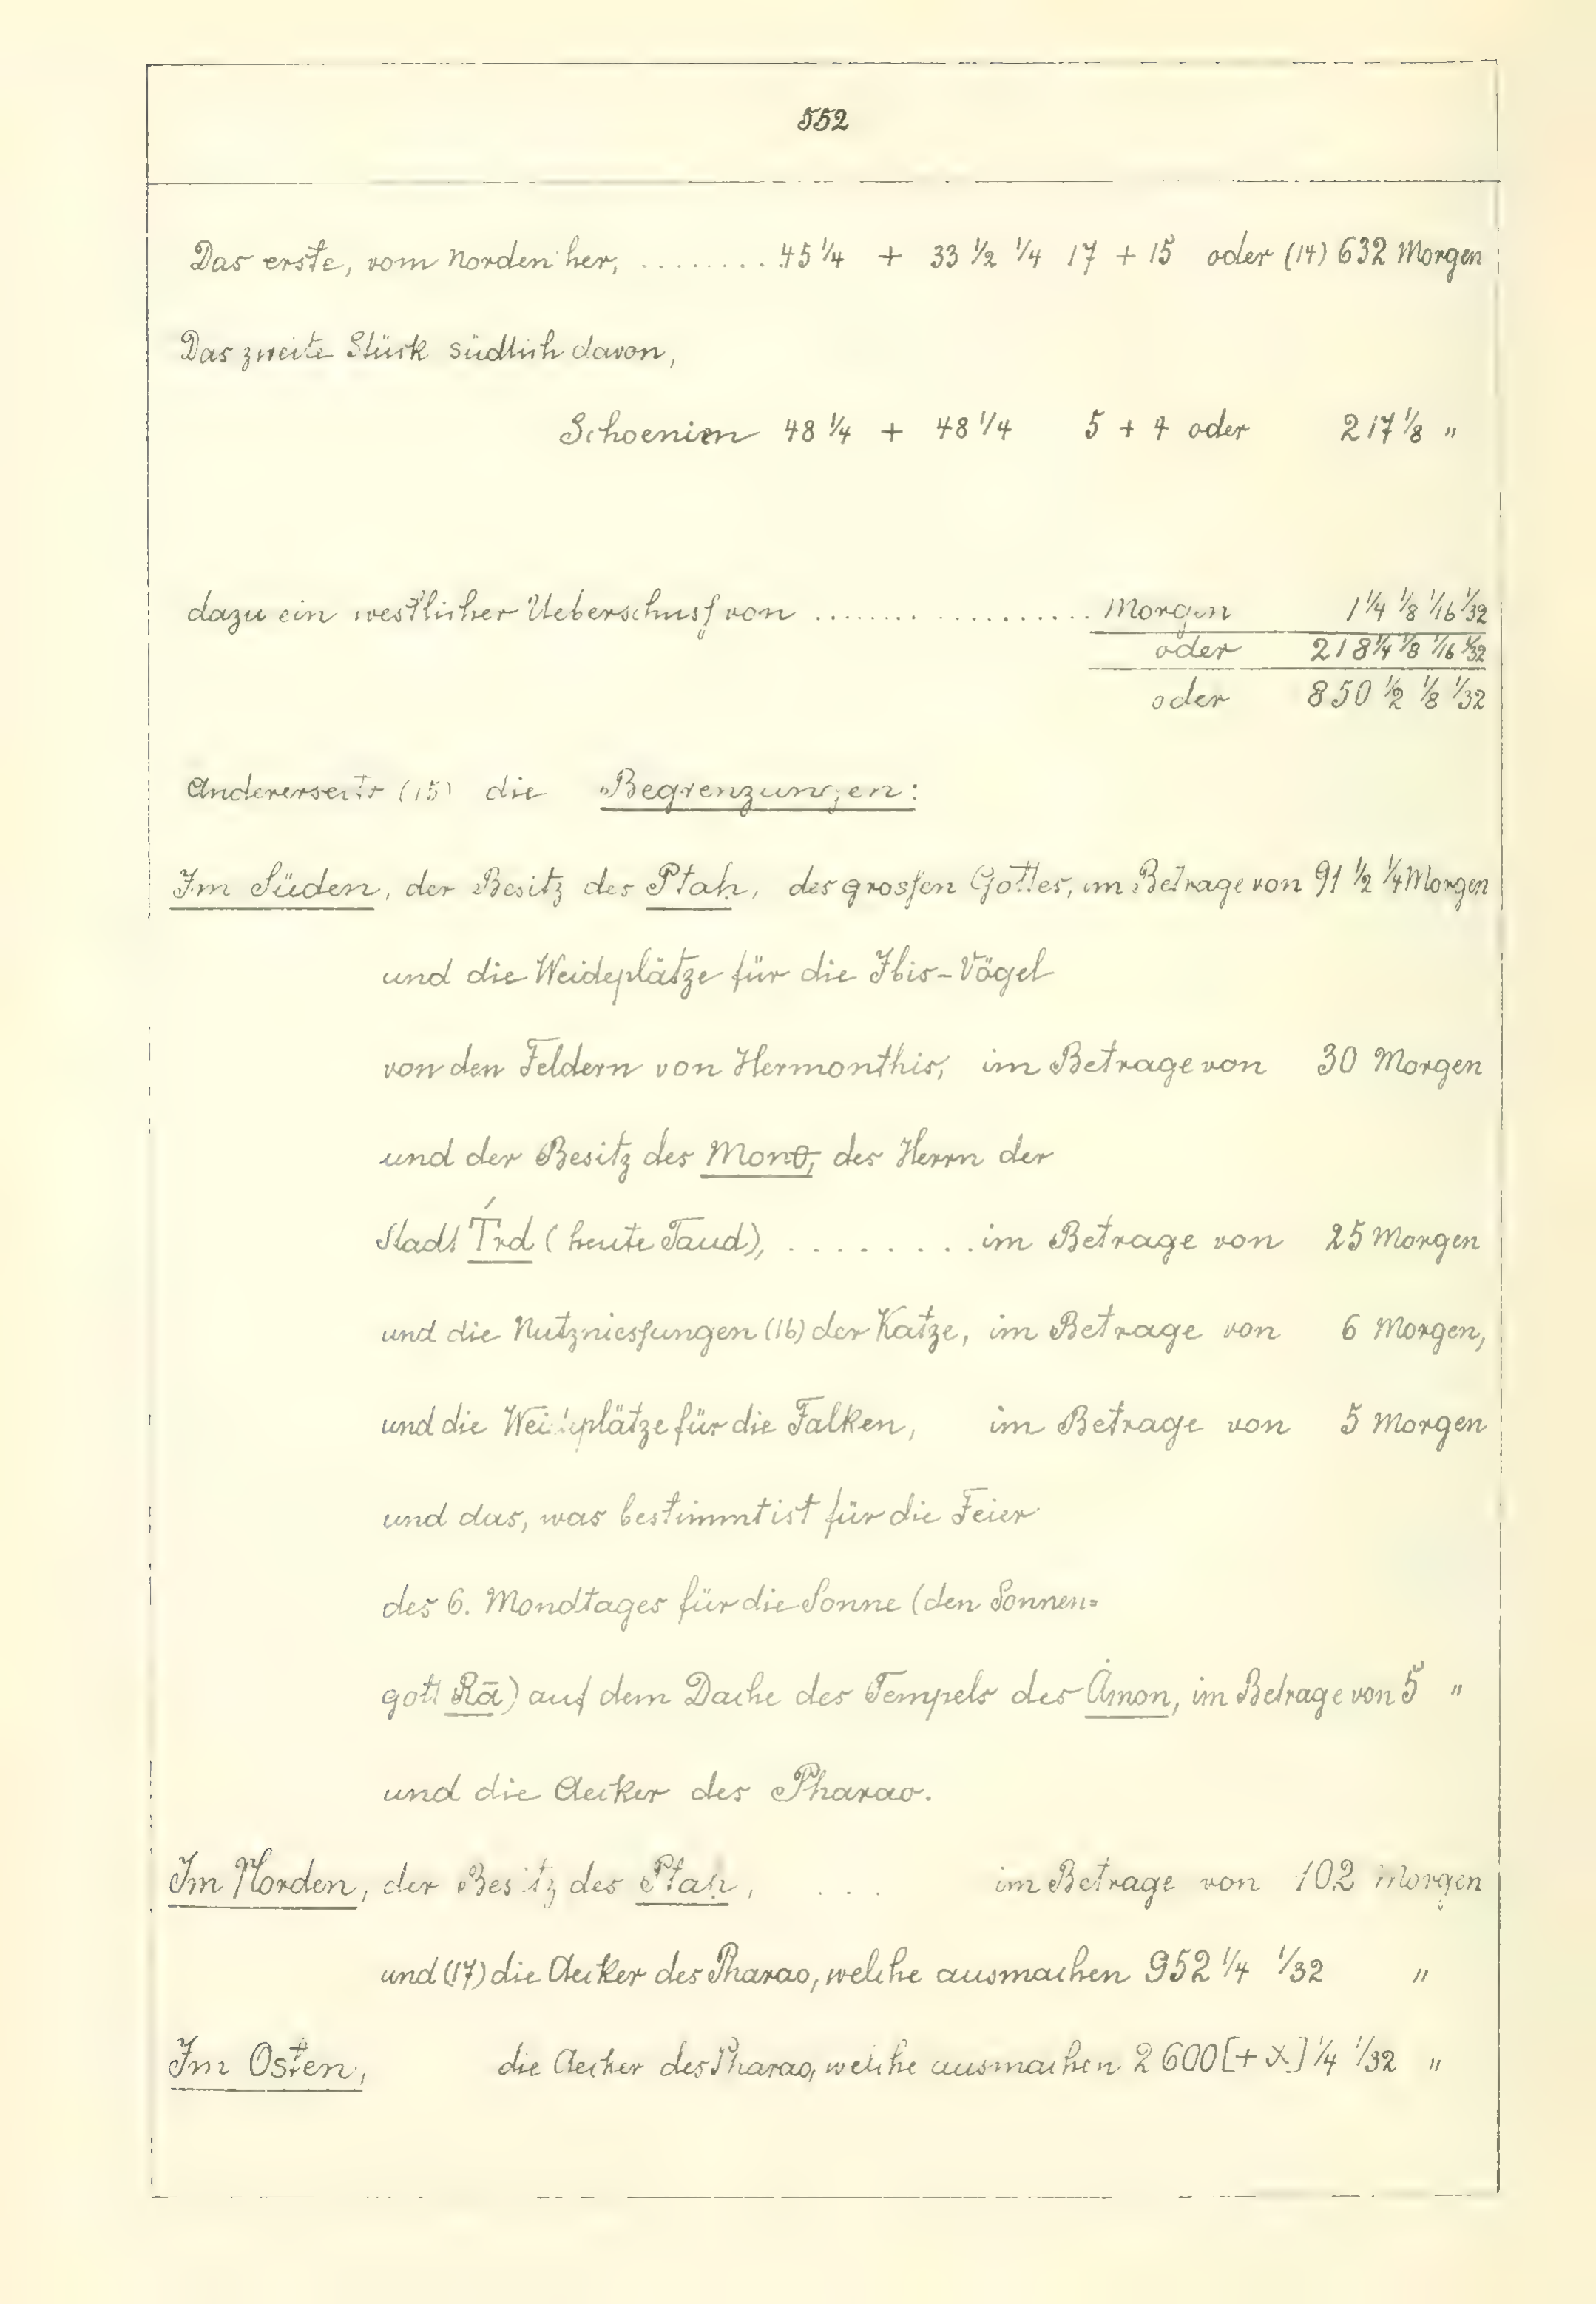 552
Das erste, vom Norden her, ........ 45 1/4 + 33 1/2 1/4 17 + 15 oder (14) 632 Morgen
Das zweite Stück südlich davon,
Schoenien 48 1/4 + 48 1/4 5 + 4 oder 217 1/8 "
dazu ein westlicher Ueberschuss von .................. Morgen 1 1/4 1/8 1/16 1/32
oder 218 1/4 1/8 1/16 1/32
oder 850 1/2 1/8 1/32
Andererseits (15) die Begrenzungen:
Im Süden, der Besitz des Ptaḥ, des grossen Gottes, im Betrage von 91 1/2 1/4 Morgen
und die Weideplätze für die Ibis-Vögel
von den Feldern von Hermonthis, im Betrage von 30 Morgen
und der Besitz des Monθ, des Herrn der
Stadt T́rd (heute Taud), ......... im Betrage von 25 Morgen
und die Nutzniessungen (16) der Katze, im Betrage von 6 Morgen,
und die Weideplätze für die Falken, im Betrage von 5 Morgen
und das, was bestimmt ist für die Feier
des 6. Mondtages für die Sonne (den Sonnen=
gott Rā) auf dem Dache des Tempels des Ȧmon, im Betrage von 5 "
und die Aecker des Pharao.
Im Norden, der Besitz des Ptaḥ, ... im Betrage von 102 Morgen
und (17) die Aecker des Pharao, welche ausmachen 952 1/4 1/32 "
Im Osten, die Aecker des Pharao, welche ausmachen 2600 [+ X] 1/4 1/32 "